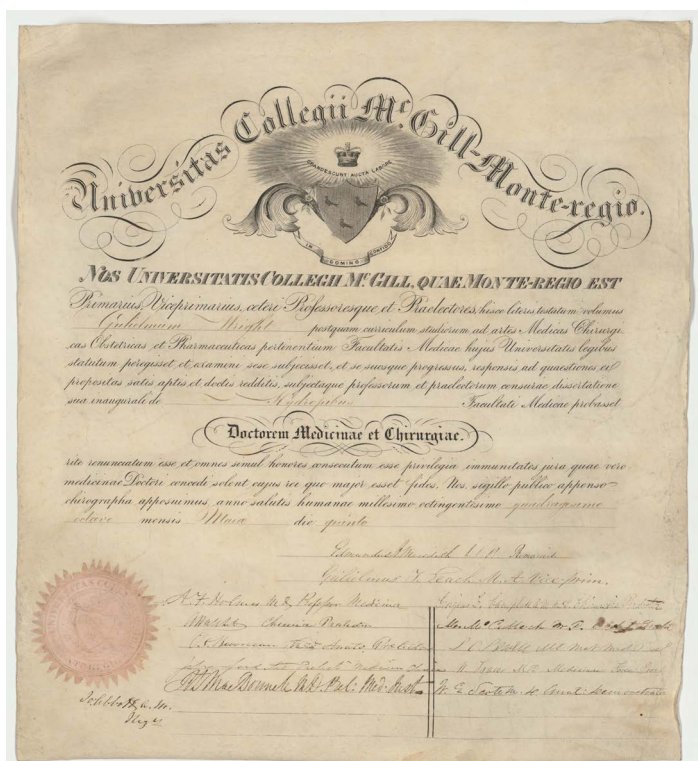 Universitas Collegii Mc. Gill-Monte-regio.
GRANDESCUNT AUCTA LABORE
IN DOMINO CONFIDO
NOS UNIVERSITATIS COLLEGII Mc GILL, QUAE MONTE-REGIO EST
Primarius, Viceprimarius, ceteri Professoresque et Praelectores, hisce literis testatum volumus
Gulielmum Wright postquam curriculum studiorum ad artes Medicas Chirurgi
cas Obstetricas, et Pharmaceuticas pertinentium Facultatis Medicae hujus Universitatis legibus
statutum peregisset et examini sese subjecisset, et se suosque progressus, responsis ad quaestiones ei
propositas satis aptis et doctis redditis, subjectaque professorum et praelectorum censurae dissertatione
sua inaugurali de Facultati Medicae probasset
Doctorem Medicinae et Chirurgiae.
rite renunciatum esse et omnes simul honores consecutum esse privilegia immunitates jura quae vero
medicinae Doctori concedi solent cujus rei quo major esset fides. Nos, sigillo publico appenso
chirographa apposuimus, anno salutis humanae millesimo octingentesimo quadragesimo
octavo mensis Maia die quinto
Meredith
Gulielmus T. Leach M.A. Viceprim.
A. F. Holmes M.D. Professor Medicina
Chemia
M.D. Campbell
Mc Culloch M.D.
Mac Donnell M.D. Med. Inst.
W. E. Scott M.D. Anat.
Abbott, A. M.